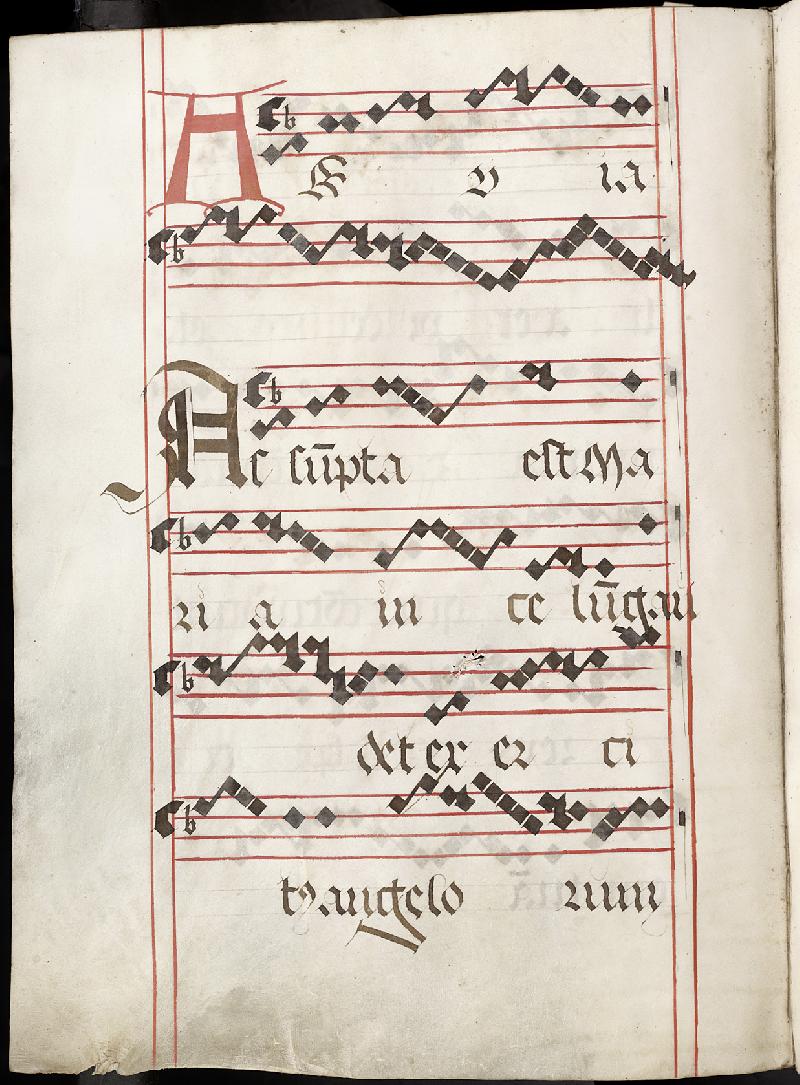 A ỻ y ia
As sūpta est Ma
ri a in ce lū gau
det ex er ci
tꝯ angelo rum